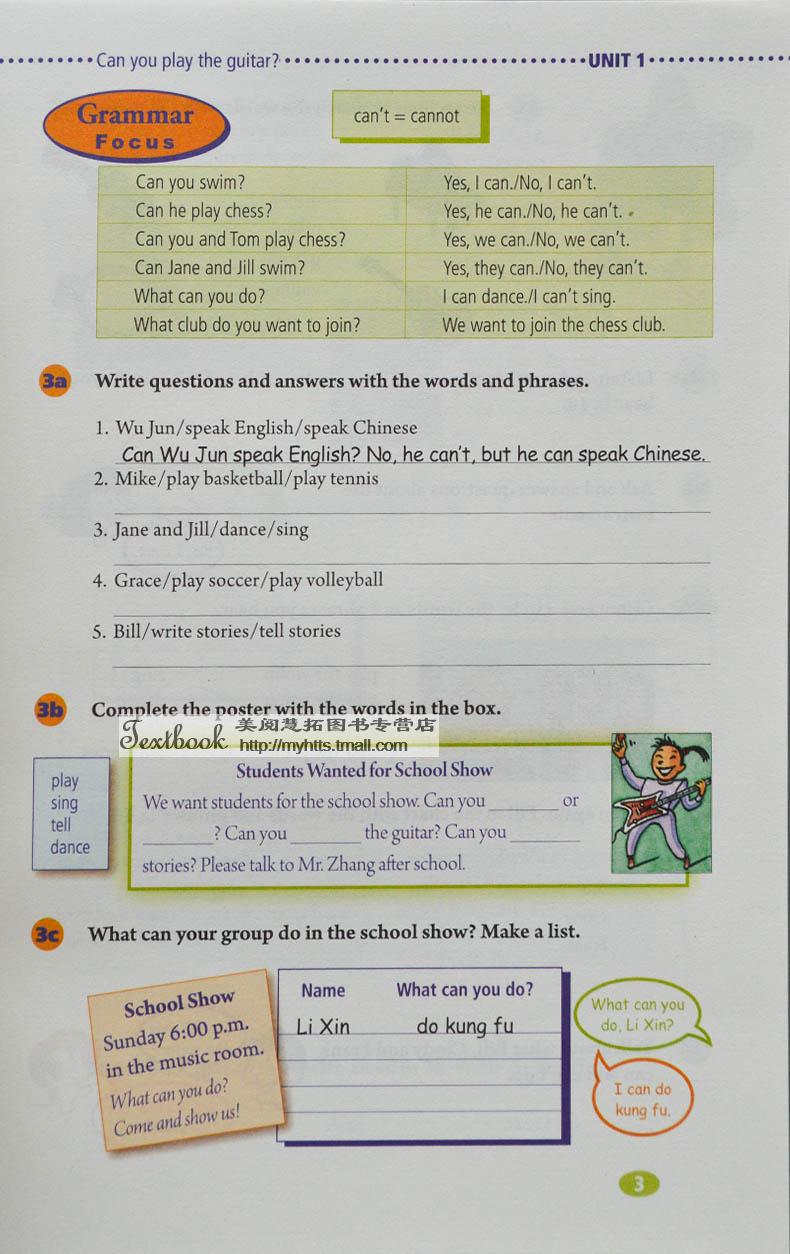 Can you play the guitar? UNIT 1
Grammar
Focus
can't = cannot
Can you swim? Yes, I can./No, I can't.
Can he play chess? Yes, he can./No, he can't.
Can you and Tom play chess? Yes, we can./No, we can't.
Can Jane and Jill swim? Yes, they can./No, they can't.
What can you do? I can dance./I can't sing.
What club do you want to join? We want to join the chess club.
3a Write questions and answers with the words and phrases.
1. Wu Jun/speak English/speak Chinese
Can Wu Jun speak English? No, he can't, but he can speak Chinese.
2. Mike/play basketball/play tennis
3. Jane and Jill/dance/sing
4. Grace/play soccer/play volleyball
5. Bill/write stories/tell stories
3b Complete the poster with the words in the box.
Textbook 美阅慧拓图书专营店
http://myhtts.tmall.com
play
sing
tell
dance
Students Wanted for School Show
We want students for the school show. Can you ________ or
________? Can you ________ the guitar? Can you ________
stories? Please talk to Mr. Zhang after school.
3c What can your group do in the school show? Make a list.
School Show
Sunday 6:00 p.m.
in the music room.
What can you do?
Come and show us!
Name What can you do?
Li Xin do kung fu
What can you
do, Li Xin?
I can do
kung fu.
3